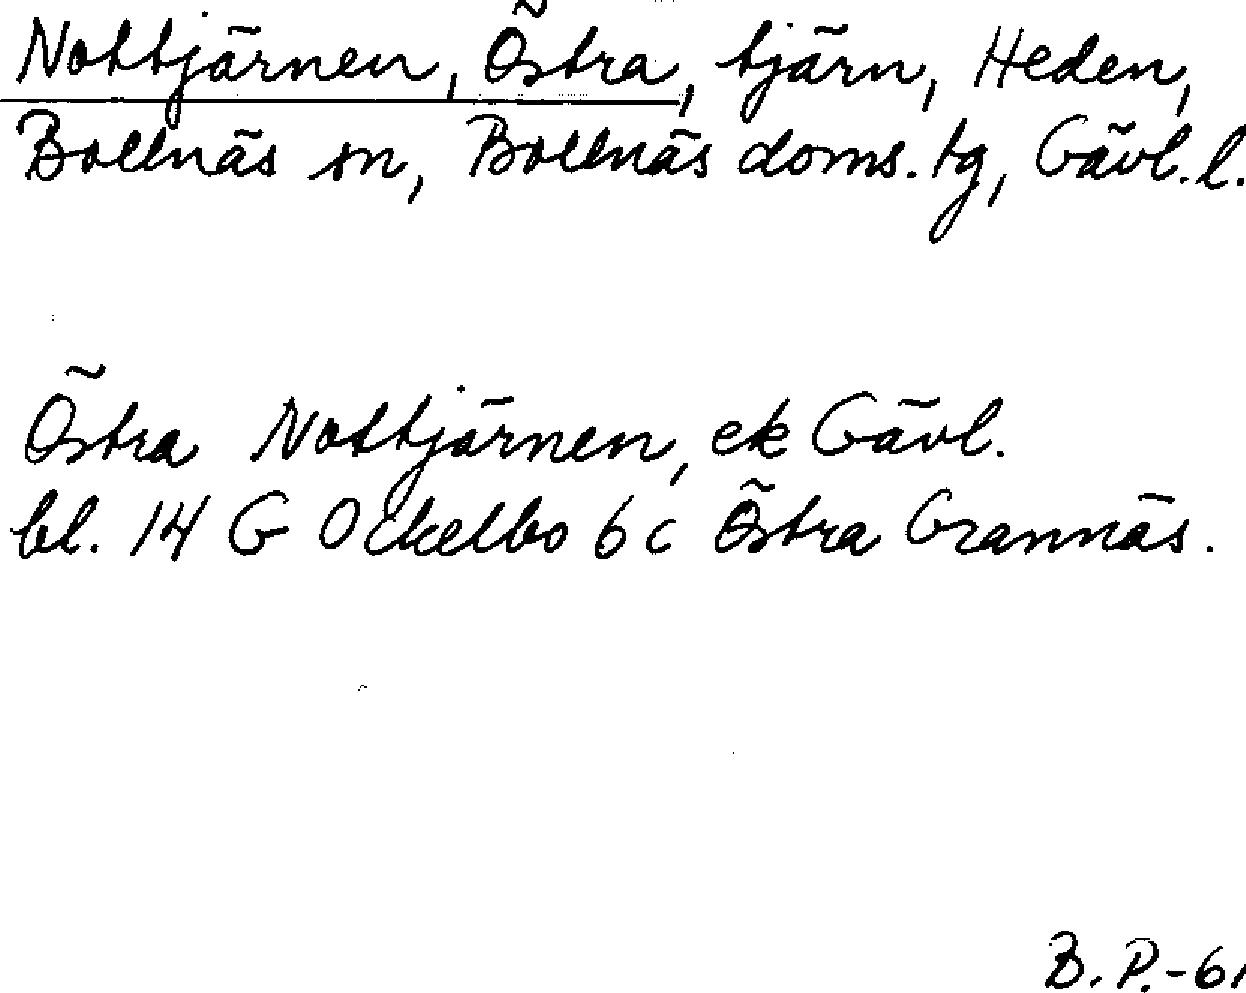 Nottjärnen, Östra, tjärn, Heden,
Bollnäs sn, Bollnäs doms. tg, Gävl. l.
Östra Nottjärnen, ek Gävl.
bl. 14 G Ockelbo 6 c Östra Grannäs.
B. P.-61